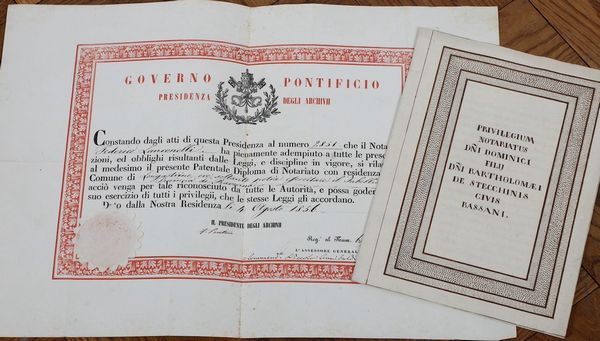 GOVERNO PONTIFICIO
PRESIDENZA DEGLI ARCHIVII
Constando dagli atti di questa Presidenza al numero 2851 che il Nota
Federico ha pienamente adempiuto a tutte le prese
zioni, ed obblighi risultanti dalle Leggi, e discipline in vigore, si rila
al medesimo il presente Patentale Diploma di Notariato con residenza
Comune di
acciò venga per tale riconosciuto da tutte le Autorità, e possa goder
suo esercizio di tutti i privilegii, che le stesse Leggi gli accordano.
Dato dalla Nostra Residenza li 4 Agosto 1856
IL PRESIDENTE DEGLI ARCHIVII
Reg. al
L'ASSESSORE GENERAL
PRIVILEGIUM
NOTARIATUS
DÑI DOMINICI
FILII
DÑI BARTHOLOMÆI
DE STECCHINIS
CIVIS
BASSANI.